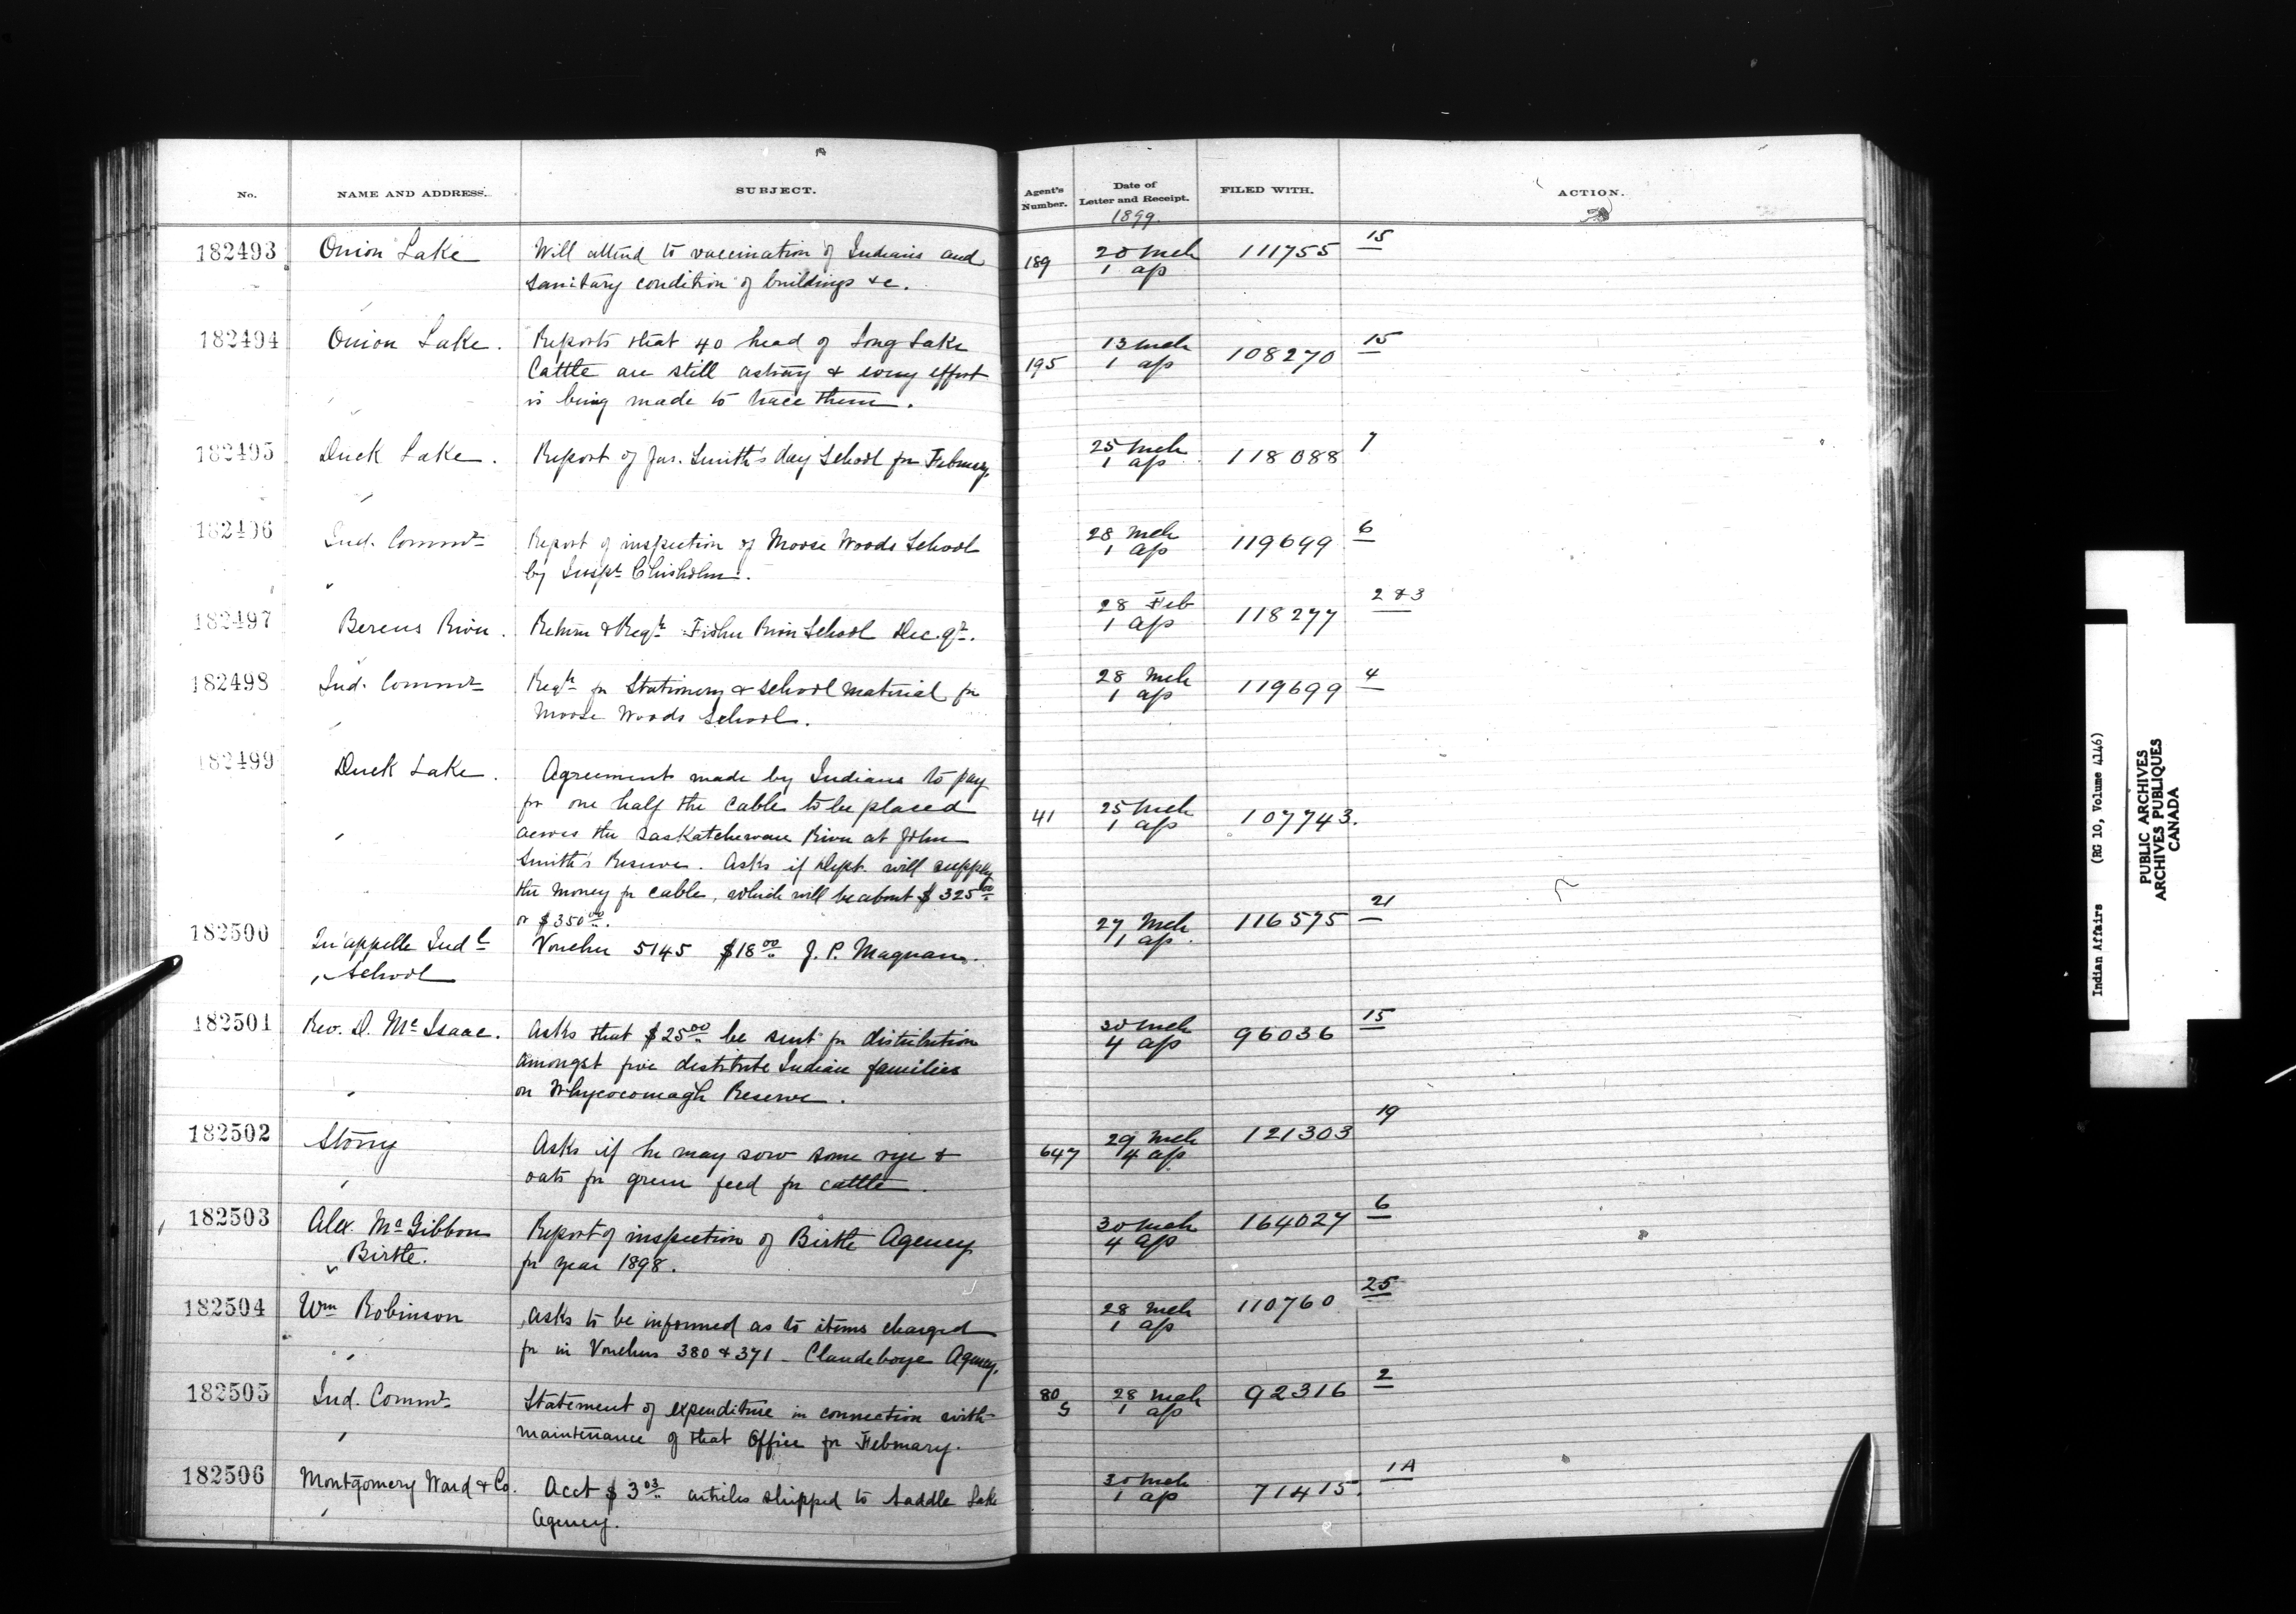 No. NAME AND ADDRESS. SUBJECT. Agent's Number. Date of Letter and Receipt. FILED WITH. ACTION.
1899.
182493 Onion Lake Will attend to vaccination of Indians and 189 20 Mch 111755 15
sanitary condition of buildings &c. 1 ap
182494 Onion Lake. Reports that 40 head of Long Lake 195 13 Mch 108270 15
Cattle are still astray & every effort 1 ap
is being made to trace them.
182495 Duck Lake. Report of Jas. Smith's day School for February. 25 Mch 118088 7
1 ap
182496 Ind. Commr Report of inspection of Moose Woods School 28 Mch 119699 6
by Inspt Chisholm. 1 ap
182497 Berens River. Return & Reqn Fisher River School Dec. qr. 28 Feb 118277 2 & 3
1 ap
182498 Ind. Commr Reqn for Stationery & School material for 28 Mch 119699 4
Moose Woods School. 1 ap
182499 Duck Lake. Agreement made by Indians to pay
for one half the cable to be placed 41 25 Mch 107743.
across the Saskatchewan River at John 1 ap
Smith's Reserve. Asks if Dept. will supply
the money for cable, which will be about $325.00
or $350.00.
182500 Qu'appelle Indl Voucher 5145 $18.00 J. P. Magnan. 27 Mch 116575 21
School 1 ap.
182501 Rev. D. McIsaac. Asks that $25.00 be sent for distribution 30 Mch 96036 15
amongst five destitute Indian families 4 ap
on Whycocomagh Reserve.
182502 Stony Asks if he may sow some rye & 647 29 Mch 121303 19
oats for green feed for cattle. 4 ap
182503 Alex. McGibbon Report of inspection of Birtle Agency 30 Mch 164027 6
Birtle. for year 1898. 4 ap
182504 Wm Robinson Asks to be informed as to items charged 28 Mch 110760 25
for in Vouchers 380 & 371 - Clandeboye Agency. 1 ap
182505 Ind. Commr Statement of expenditure in connection with 80 28 Mch 92316 2
maintenance of that Office for February. 5 1 ap
182506 Montgomery Ward & Co. Acct $3.03 articles shipped to Saddle Lake 30 Mch 71415. 1A
Agency. 1 ap
Indian Affairs (RG 10, Volume 4146)
PUBLIC ARCHIVES
ARCHIVES PUBLIQUES
CANADA